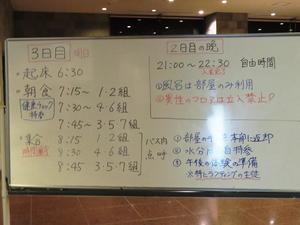 3日目 明日
起床 6:30
朝食 7:15〜 1・2組
健康チェック 持参
7:30〜 4・6組
7:45〜 3・5・7組
集合 8:15 1・2組
時間厳守
8:30 4・6組
8:45 3・5・7組
バス内 点呼
2日目の晩
21:00〜22:30 自由時間
①風呂は部屋のみ利用
②異性のフロアは立入禁止
①部屋の 本部に返却
②水分 持参
③午後の体験の準備
※特にラフティングの生徒